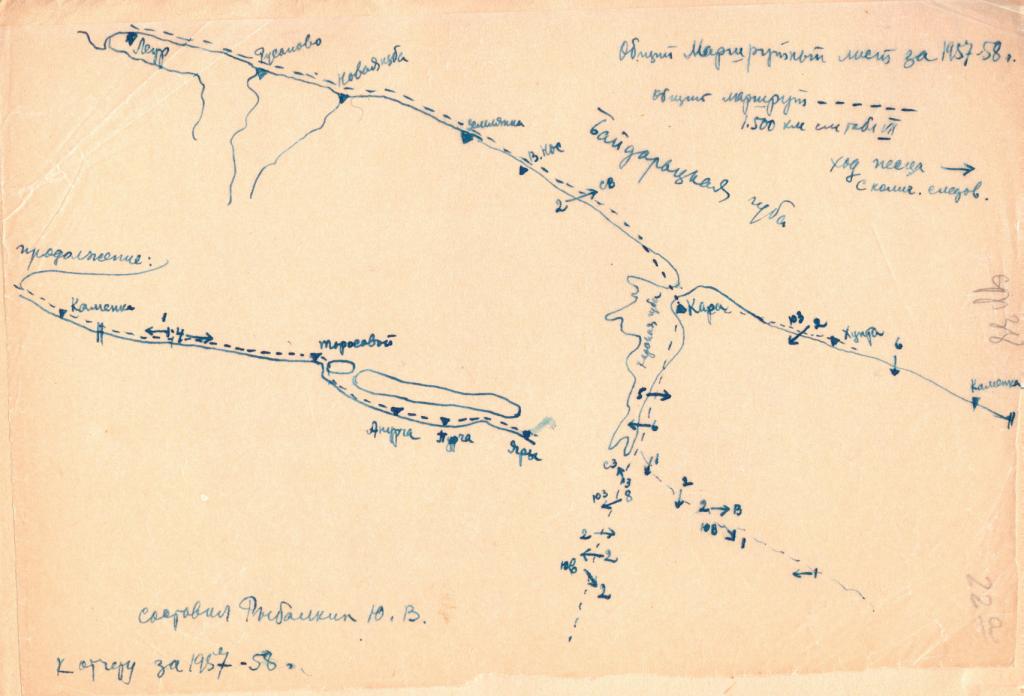 Общий Маршрутный лист за 1957-58 г.
Общий маршрут
1.500 км см табл VII
ход песца →
с колич. следов.
Байдарацкая губа
Русаново
Новая изба
Землянка
В. Кос
2 СВ
Карская губа
Кара
ЮЗ 2
Хунда
6
Каменка
продолжение:
Каменка
1
4
Торосовый
Яры
5
6
1
СЗ
3
2
ЮЗ 8
2 → В
ЮВ 1
2
2
1
ЮВ
2
составил Рыбалкин Ю. В.
К отчету за 1957-58 г.
22а